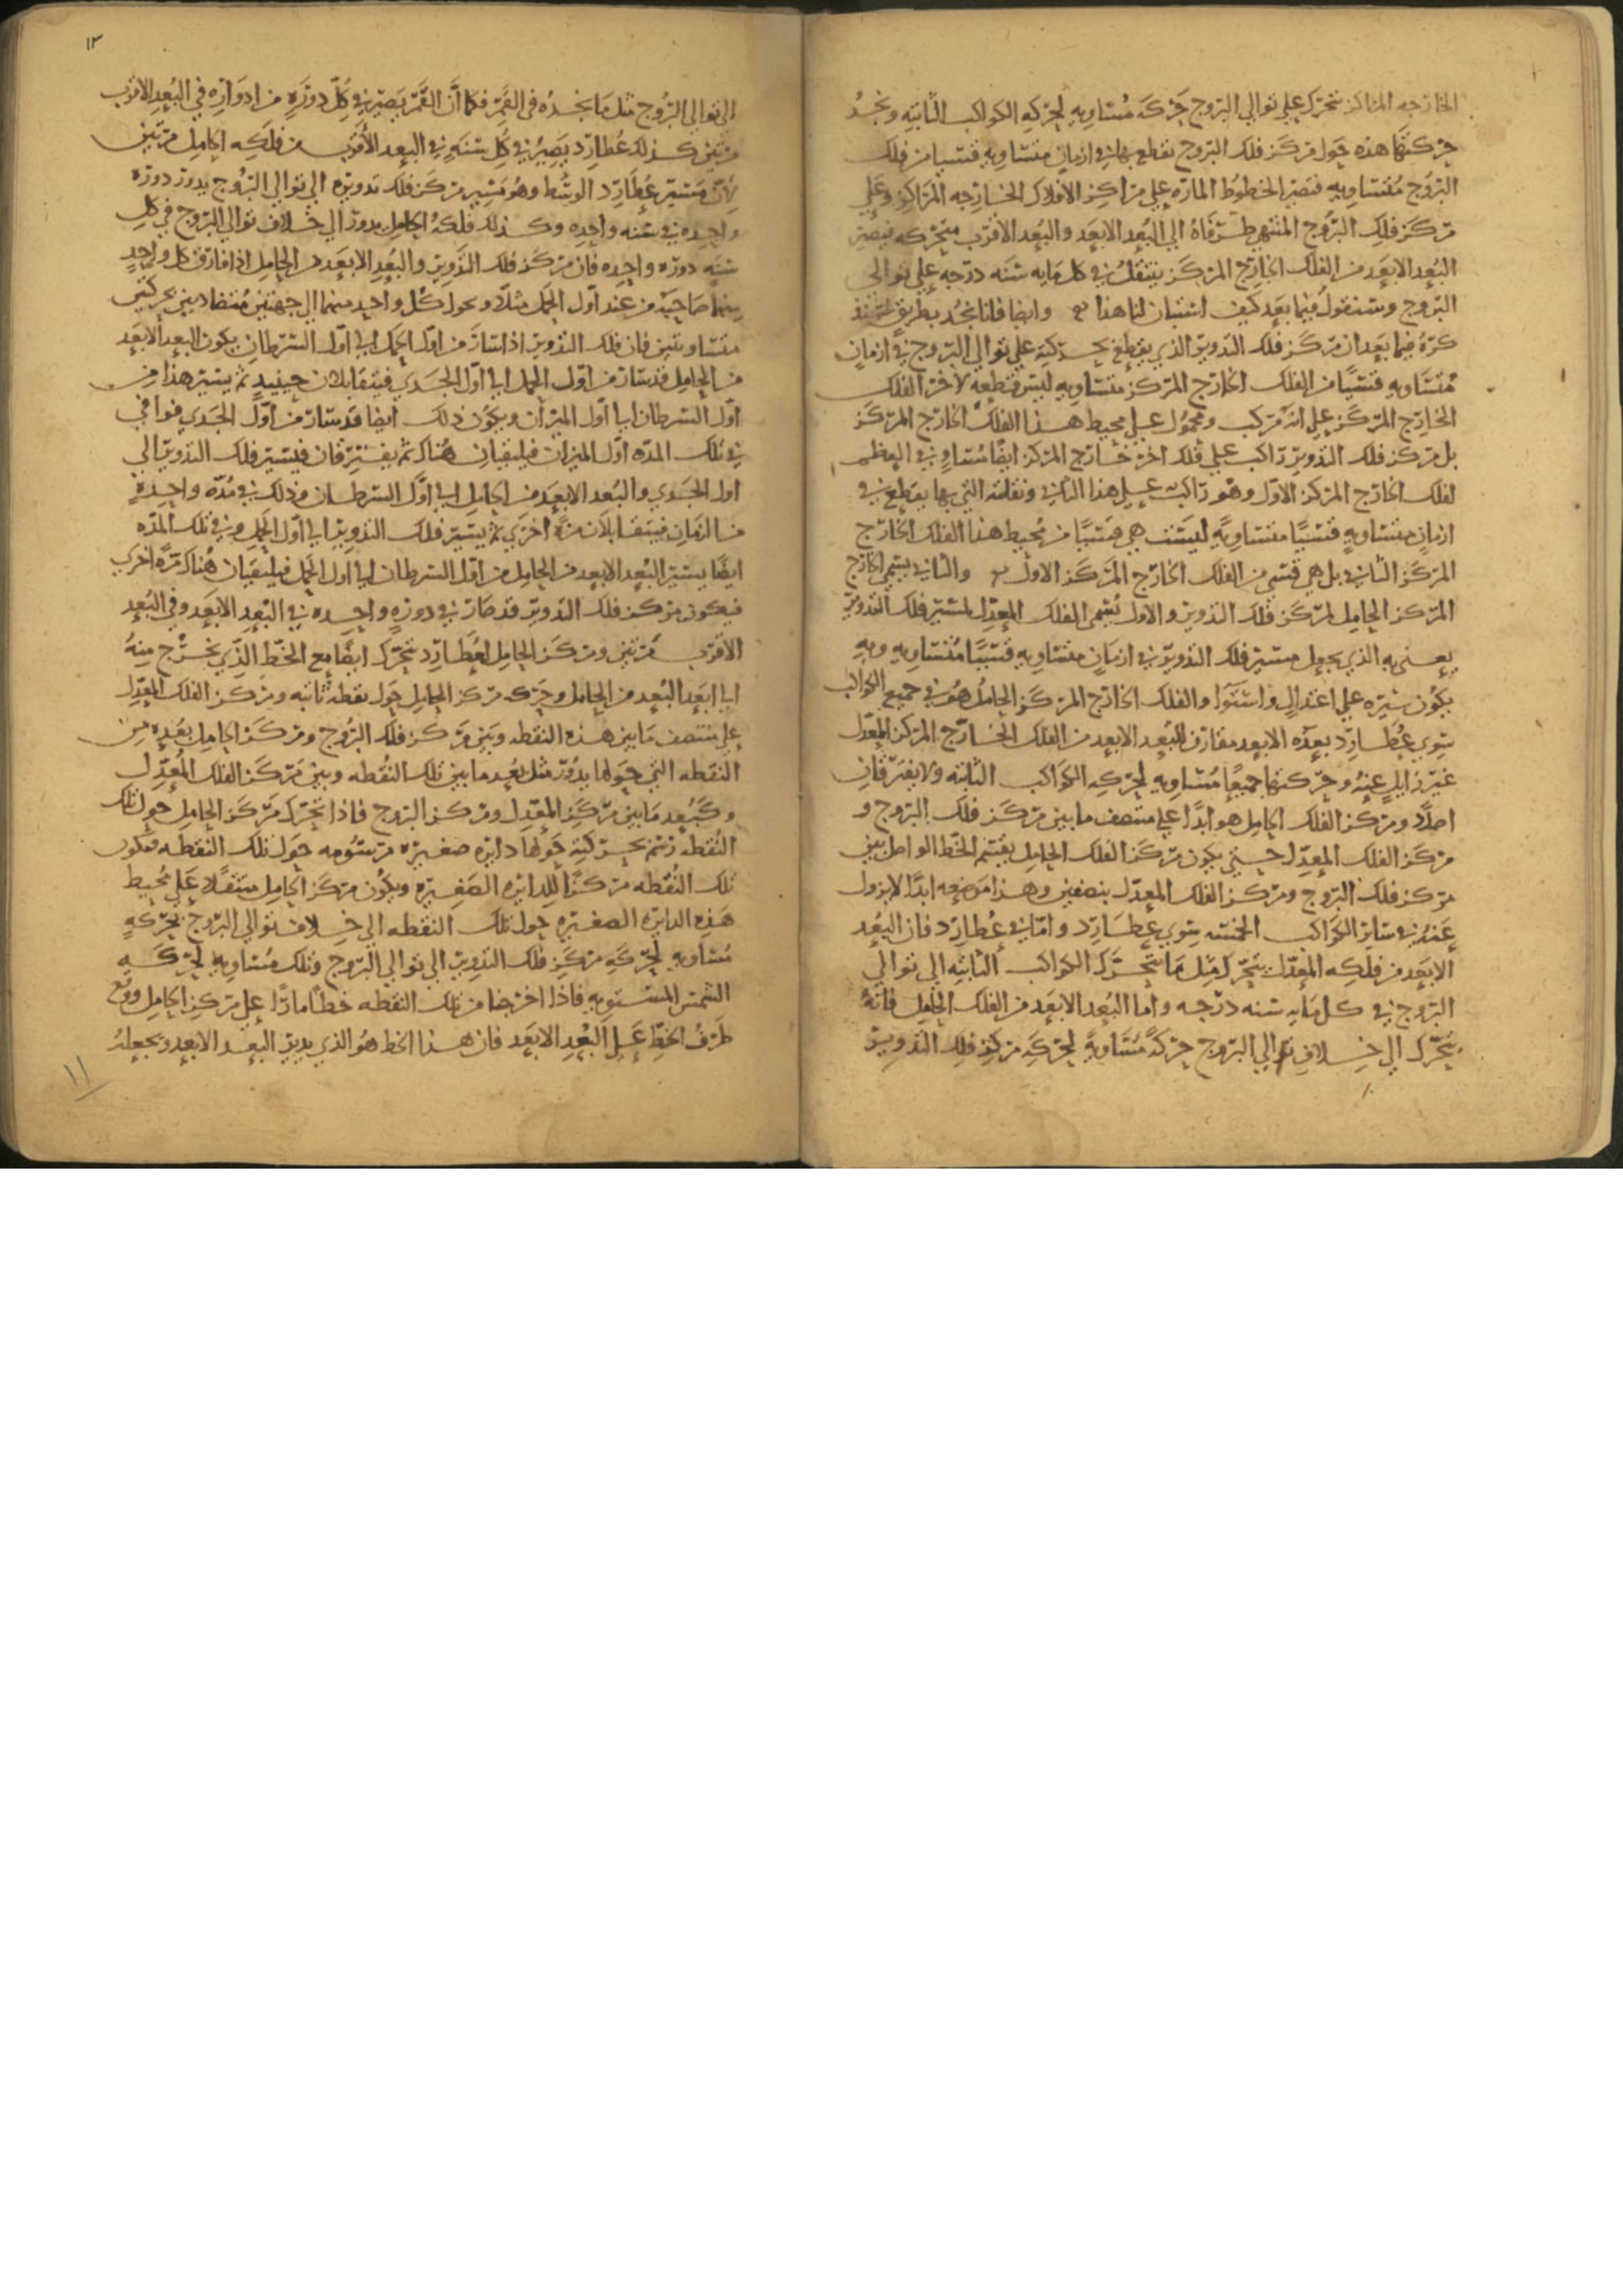 الخارجه المراكز تتحرك على توالي البروج حركه مُتساويه لحركه الكواكب الثابته ونجدُ
حركتها هذه حول مركز فلك البروج تقطع بها في ازمانٍ متساويه قسيا من فلك
البروج مُتساويه فتصير الخطوط المارّه على مراكز الافلاك الخارجه المراكز وعلى
مركز فلك البروج المنتهي طرفاهُ الي البُعد الابعد والبُعد الاقرب متحركه فيصير
البُعد الابعد من الفلك الخارج المركز ينتقلُ في كل مايه سَنه درجه على توالي
البروج وسنقول فيما بعد كيف استبان لنا هذا وايضا فانا نجد بطريق سنذ
كرهُ فيما بعد ان مركز فلك التدوير الذي يقطع بحركته على توالي البروج في ازمانٍ
مُتساويه قسيًا من الفلك الخارج المركز متساويه ليس قطعه لاخر الفلك
الخارج المركز على انه مركب ومحمول على محيط هذا الفلك الخارج المركز
بل مركز فلك التدوير راكب على فلك اخر خارج المركز ايضًا مُساوٍ في العظم
لفلك الخارج المركز الاول وهو راكب على هذا الثاني ونقلته التي بها يقطع في
ازمانٍ متساويهٍ قسيًا متساويهً ليست هي قسيًا من مُحيط هذا الفلك الخارج
المركز الثاني بل هي قسي من الفلك الخارج المركز الاول والثاني يسمى الخارج
المركز الحامل لمركز فلك التدوير والاول يُسمى الفلك المعدّل لمسير فلك التدوير
يعني به الذي يجعل مسير فلك التدوير في ازمانٍ متساويه قسيًا مُتساويه وبه
يكون سيره على اعتدالٍ واستوا والفلك الخارج المركز الحاملُ هُو في جميع الكواكب
سوي عُطارد بعده الابعد مقارن للبُعد الابعد من الفلك الخارج المركز المعدّل
غير زايلٍ عنه وحركتها جميعًا مُتساويه لحركه الكواكب الثابته ولا يفترقانِ
اصلاً ومركز الفلك الحامل هو ابدًا على منتصف ما بين مركز فلك البروج و
مركز الفلك المعدّل حتى يكون مركز الفلك الحامل يقسم الخط الواصل بين
مركز فلك البروج ومركز الفلك المعدّل بنصفين وهذا موضعه ابدًا لا يزول
عنه في سائر الكواكب الخمسه سوي عطارد واما في عُطارد فان البُعد
الابعد من فلكه المعدّل يتحرك مثل ما تتحرك الكواكب الثابته الى توالي
البروج في كل مايه سنه درجه واما البُعد الابعد من الفلك الحامل فانهُ
يتحرك الي خلاف توالي البروج حركةً مُتساويةً لحركه مركز فلك التدوير
١٢
الى توالي البُروج مثل ما نجدهُ في القمر فكما أن القمر يصير في كل دورةٍ من ادواره في البُعد الاقرب
مرتين كذلك عُطارد يَصيرُ في كل سنةٍ في البعد الأقرب من فلكه الحامل مرتين
لأن مسير عُطارد الوسط وهُو مسير مركز فلك تدويره الي توالي البُروج يدور دورة
واحده في سنه واحده وكذلك فلكهُ الحامل يدور الي خلاف توالي البروج في كل
سَنه دوره واحده فان مركز فلك التدوير والبُعد الابعد من الحامل اذا فارق كل واحدٍ
منهما صاحبه من عند اول الحمل مثلاً وتحرك كُلّ واحدٍ منهما الي جهتين مُتضادتين بحركتين
متساويتين فان فلك التدوير اذا سار من اول الحمل الى اوّل السرطان يكون البعد الابعد
من الحامل قد سار من اوّل الحمل الي اوّل الجدي فيتقابلان حينيذٍ ثم يسير هذا من
اوّل السرطان الي اول الميزان ويكون ذلك ايضا قد سار من اوّل الجدي فوافي
في تلك المده اول الميزان فيلتقيان هُناك ثم يفترقان فيسير فلك التدوير الي
اول الجدي والبُعد الابعد من الحامل الي اوّل السرطان وذلك في مُدّه واحدةٍ
من الزمان فيتقابلان مرّةً اخري ثم يسير فلك التدوير الي اول الحمل وفي تلك المدّه
ايضًا يسير البُعد الابعد من الحامل من اول السرطان الي اول الحمل فيلتقيان هُناك مرّةً اخري
فيكون مركز فلك التدوير قد صار في دورهٍ واحده في البُعد الابعد وفي البُعد
الاقرب مرتين ومركز الحامل لعُطارد تتحرك ايضًا مع الخط الذي نخرج منهُ
الي ابعد البُعد من الحامل وحركه مركز الحامل حول نقطه ثانيه ومركز الفلك المعدّل
على منتصف ما بين هذه النقطه وبين مركز فلك البُروج ومركز الحامل بعده من
النقطه التي حولها يدُور مثل بُعد ما بين تلك النُقطه وبين مركز الفلك المُعدّل
وكبُعد ما بين مركز المعدّل ومركز البروج فاذا تحرّك مركز الحامل حول تلك
النُقطه رسم بحركته حولها دايره صغيره مرسُومه حول تلك النقطه فتكون
تلك النُقطه مركزًا للدايره الصَغيره ويكون مركز الحامل متنقلًا على مُحيط
هذه الدايره الصغيره حول تلك النقطه الي خلاف توالي البروج بحركهٍ
مُساويه لحركه مركز فلك التدوير الي توالي البروج وتلك مُساويه لحركه
الشمس المستويه فاذا اخرجنا من تلك النقطه خطًا مارًا على مركز الحامل ووقع
طرفُ الخطّ على البُعد الابعد فان هذا الخط هُو الذي يدير البعد الابعد ويجعلهُ
١١